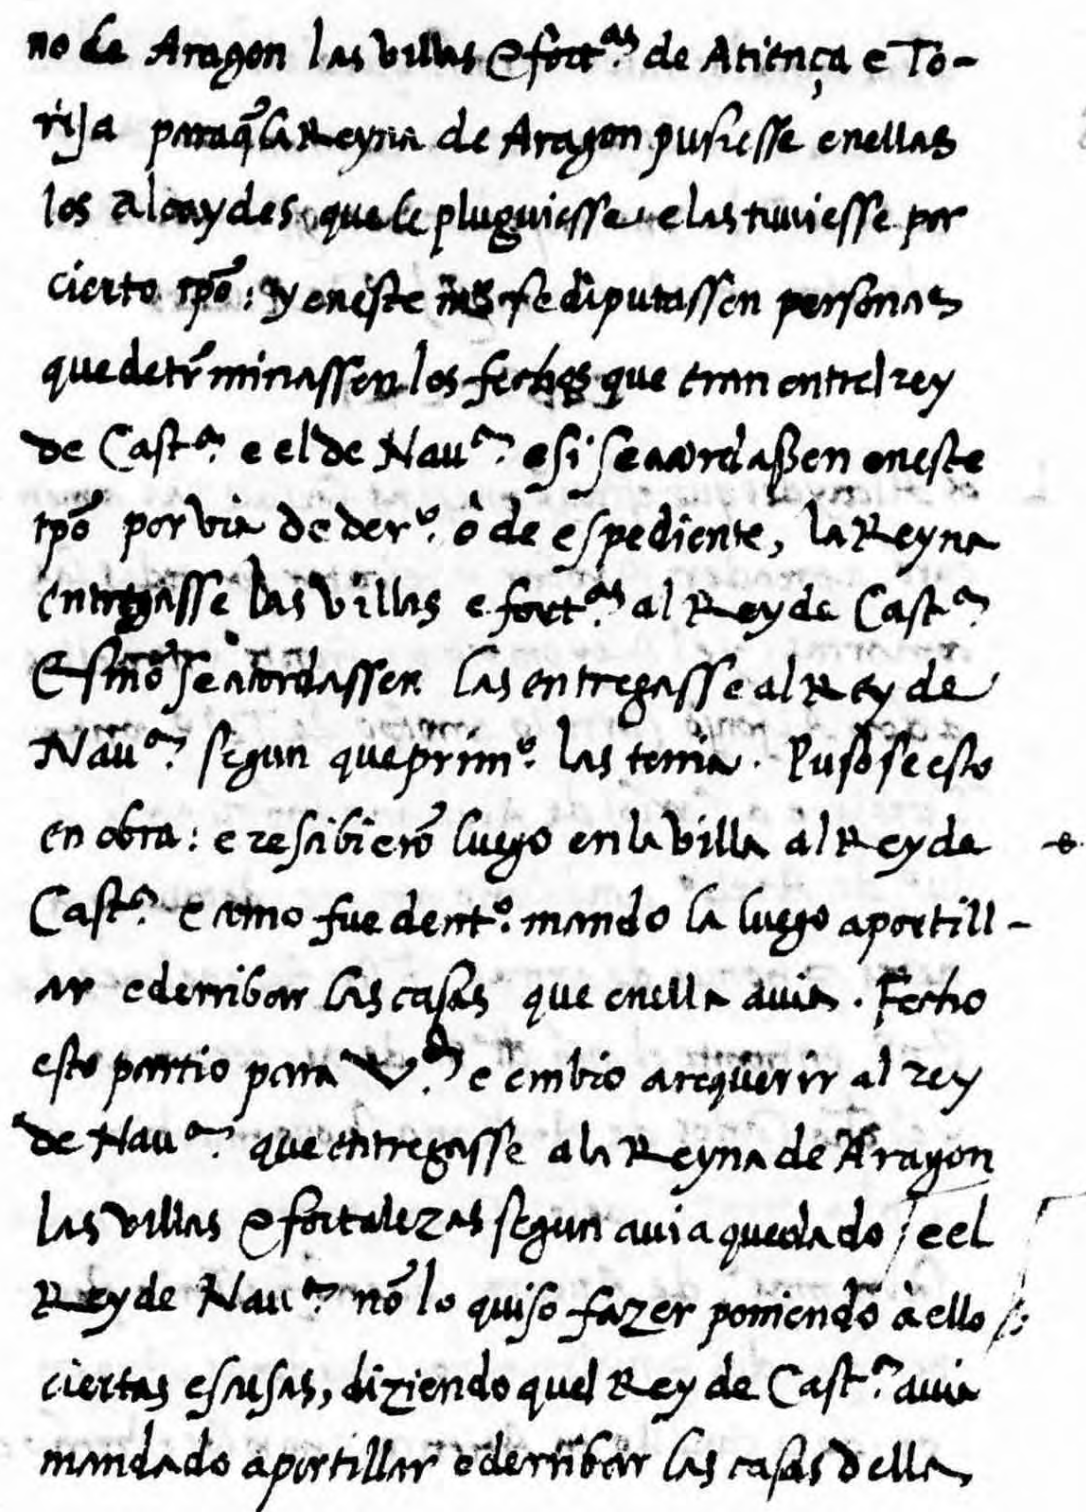 no de Aragon las villas e fort.as de Atiença e To-
rija paraq̃ la Reyna de Aragon pusiesse enellas
los alcaydes que le pluguiesse e las tuviesse por
cierto tpõ: y eneste se diputassen personas
que detr̃minassen los fechos que eran entrel rey
de Cast.a e el de Nau.a e si se acordassen eneste
tpõ por via de der.o ò de espediente, la Reyna
entregasse las villas e fort.as al Rey de Cast.a
E si nõ se acordassen las entregasse al Rey de
Nau.a segun que prim.o las tenia. Pusose esto
en obra: e rescibierõ luego en la villa al Rey de
Cast.a e como fue dent.o mando la luego aportill-
ar e derribar las casas que enella avia. Fecho
esto partio para V.d e embio a requerir al rey
de Nau.a que entregasse a la Reyna de Aragon
las villas e fortalezas segun auia quedado / e el
Rey de Nau.a nõ lo quiso fazer poniendo à ello
ciertas escusas, diziendo quel Rey de Cast.a auia
mandado aportillar e derribar las casas della